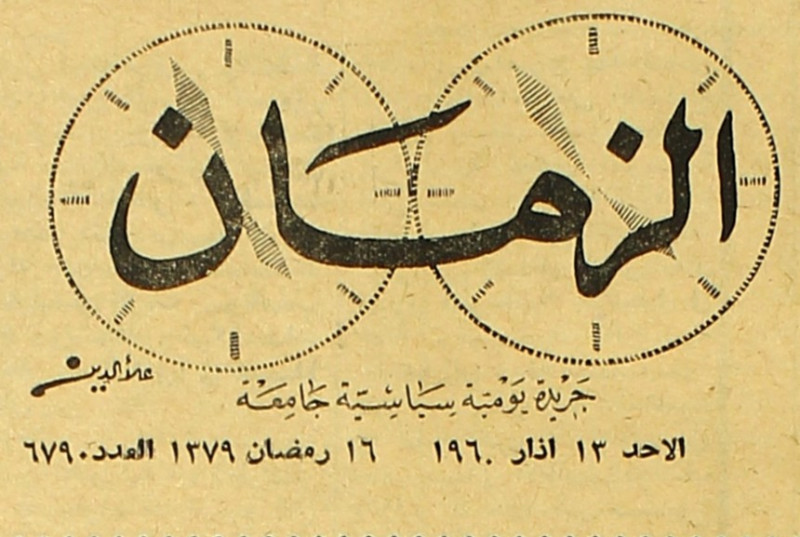 الزمان
علاء الدين
جريدة يومية سياسية جامعة
الاحد ١٣ اذار ١٩٦٠ ١٦ رمضان ١٣٧٩ العدد ٦٧٩٠